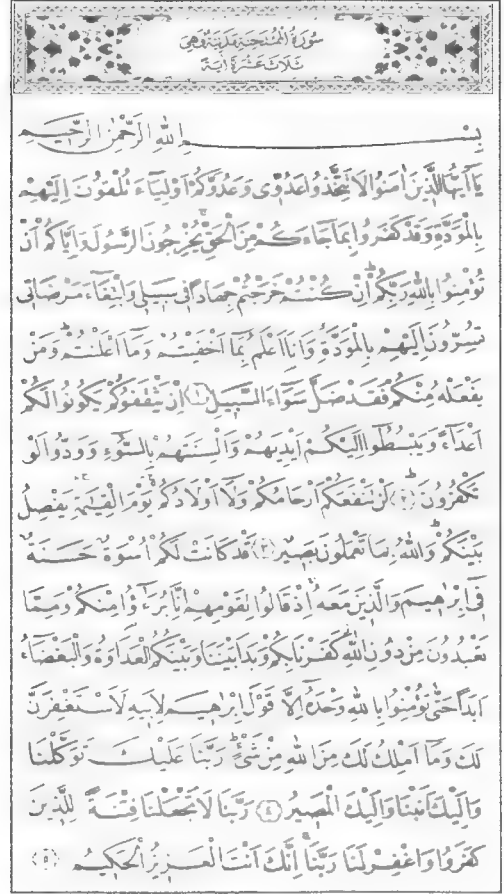 سُورَةُ الْمُمْتَحِنَةِ مَدَنِيَّةٌ وَهِيَ
ثَلَاثَ عَشْرَةَ اٰيَةً
بِسْمِ اللّٰهِ الرَّحْمٰنِ الرَّحٖيمِ
يَٓا اَيُّهَا الَّذٖينَ اٰمَنُوا لَا تَتَّخِذُوا عَدُوّٖى وَعَدُوَّكُمْ اَوْلِيَٓاءَ تُلْقُونَ اِلَيْهِمْ
بِالْمَوَدَّةِ وَقَدْ كَفَرُوا بِمَا جَٓاءَكُمْ مِنَ الْحَقِّۚ يُخْرِجُونَ الرَّسُولَ وَاِيَّاكُمْ اَنْ
تُؤْمِنُوا بِاللّٰهِ رَبِّكُمْؕ اِنْ كُنْتُمْ خَرَجْتُمْ جِهَادًا فٖى سَبٖيلٖى وَابْتِغَٓاءَ مَرْضَاتٖى
تُسِرُّونَ اِلَيْهِمْ بِالْمَوَدَّةِ وَاَنَا۬ اَعْلَمُ بِمَٓا اَخْفَيْتُمْ وَمَٓا اَعْلَنْتُمْؕ وَمَنْ
يَفْعَلْهُ مِنْكُمْ فَقَدْ ضَلَّ سَوَٓاءَ السَّبٖيلِ ﴿١﴾ اِنْ يَثْقَفُوكُمْ يَكُونُوا لَكُمْ
اَعْدَٓاءً وَيَبْسُطُٓوا اِلَيْكُمْ اَيْدِيَهُمْ وَاَلْسِنَتَهُمْ بِالسُّٓوءِ وَوَدُّوا لَوْ
تَكْفُرُونَؕ ﴿٢﴾ لَنْ تَنْفَعَكُمْ اَرْحَامُكُمْ وَلَٓا اَوْلَادُكُمْۚ يَوْمَ الْقِيٰمَةِۚ يَفْصِلُ
بَيْنَكُمْؕ وَاللّٰهُ بِمَا تَعْمَلُونَ بَصٖيرٌ ﴿٣﴾ قَدْ كَانَتْ لَكُمْ اُسْوَةٌ حَسَنَةٌ
فٖٓى اِبْرٰهٖيمَ وَالَّذٖينَ مَعَهُۚ اِذْ قَالُوا لِقَوْمِهِمْ اِنَّا بُرَءٰٓؤُ۬ا مِنْكُمْ وَمِمَّا
تَعْبُدُونَ مِنْ دُونِ اللّٰهِ كَفَرْنَا بِكُمْ وَبَدَا بَيْنَنَا وَبَيْنَكُمُ الْعَدَاوَةُ وَالْبَغْضَٓاءُ
اَبَدًا حَتّٰى تُؤْمِنُوا بِاللّٰهِ وَحْدَهُٓ اِلَّا قَوْلَ اِبْرٰهٖيمَ لِاَبٖيهِ لَاَسْتَغْفِرَنَّ
لَكَ وَمَٓا اَمْلِكُ لَكَ مِنَ اللّٰهِ مِنْ شَىْءٍؕ رَبَّنَا عَلَيْكَ تَوَكَّلْنَا
وَاِلَيْكَ اَنَبْنَا وَاِلَيْكَ الْمَصٖيرُ ﴿٤﴾ رَبَّنَا لَا تَجْعَلْنَا فِتْنَةً لِلَّذٖينَ
كَفَرُوا وَاغْفِرْ لَنَا رَبَّنَاۚ اِنَّكَ اَنْتَ الْعَزٖيزُ الْحَكٖيمُ ﴿٥﴾